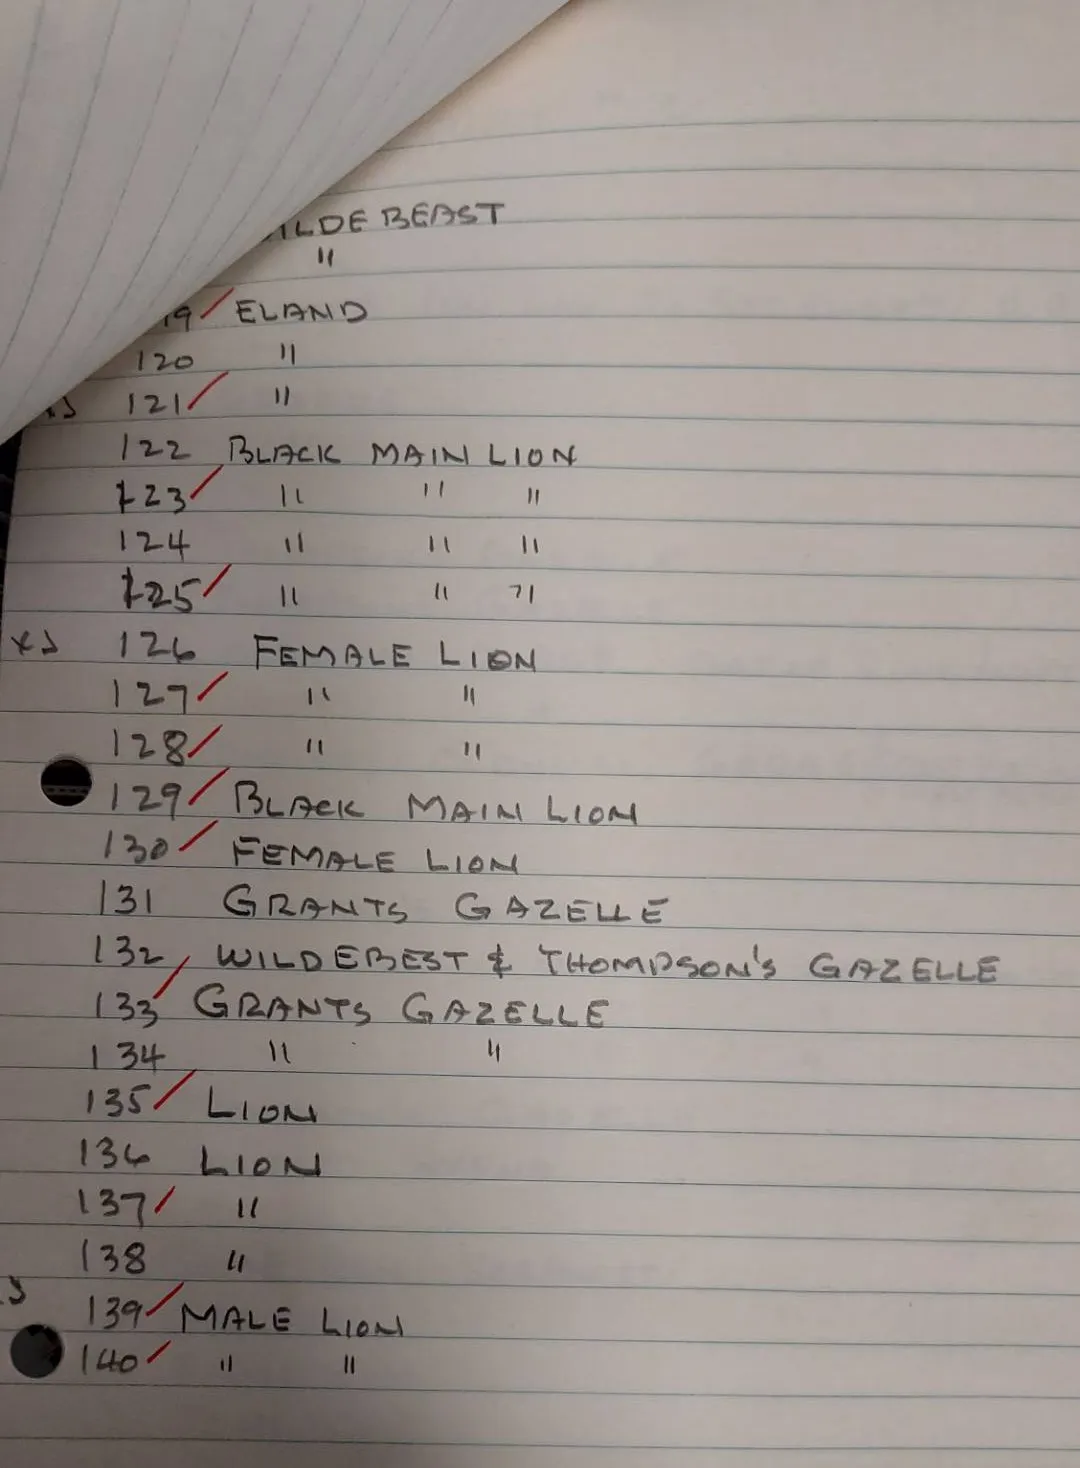 ILDE BEAST
"
19 / ELAND
120 "
121 / "
122 BLACK MAIN LION
123 / " " "
124 " " "
125 / " " "
XS 126 FEMALE LION
127 / " "
128 / " "
129 / BLACK MAIN LION
130 / FEMALE LION
131 GRANTS GAZELLE
132 WILDEBEST & THOMPSON'S GAZELLE
133 / GRANTS GAZELLE
134 " "
135 / LION
136 LION
137 / "
138 "
S
139 / MALE LION
140 / " "